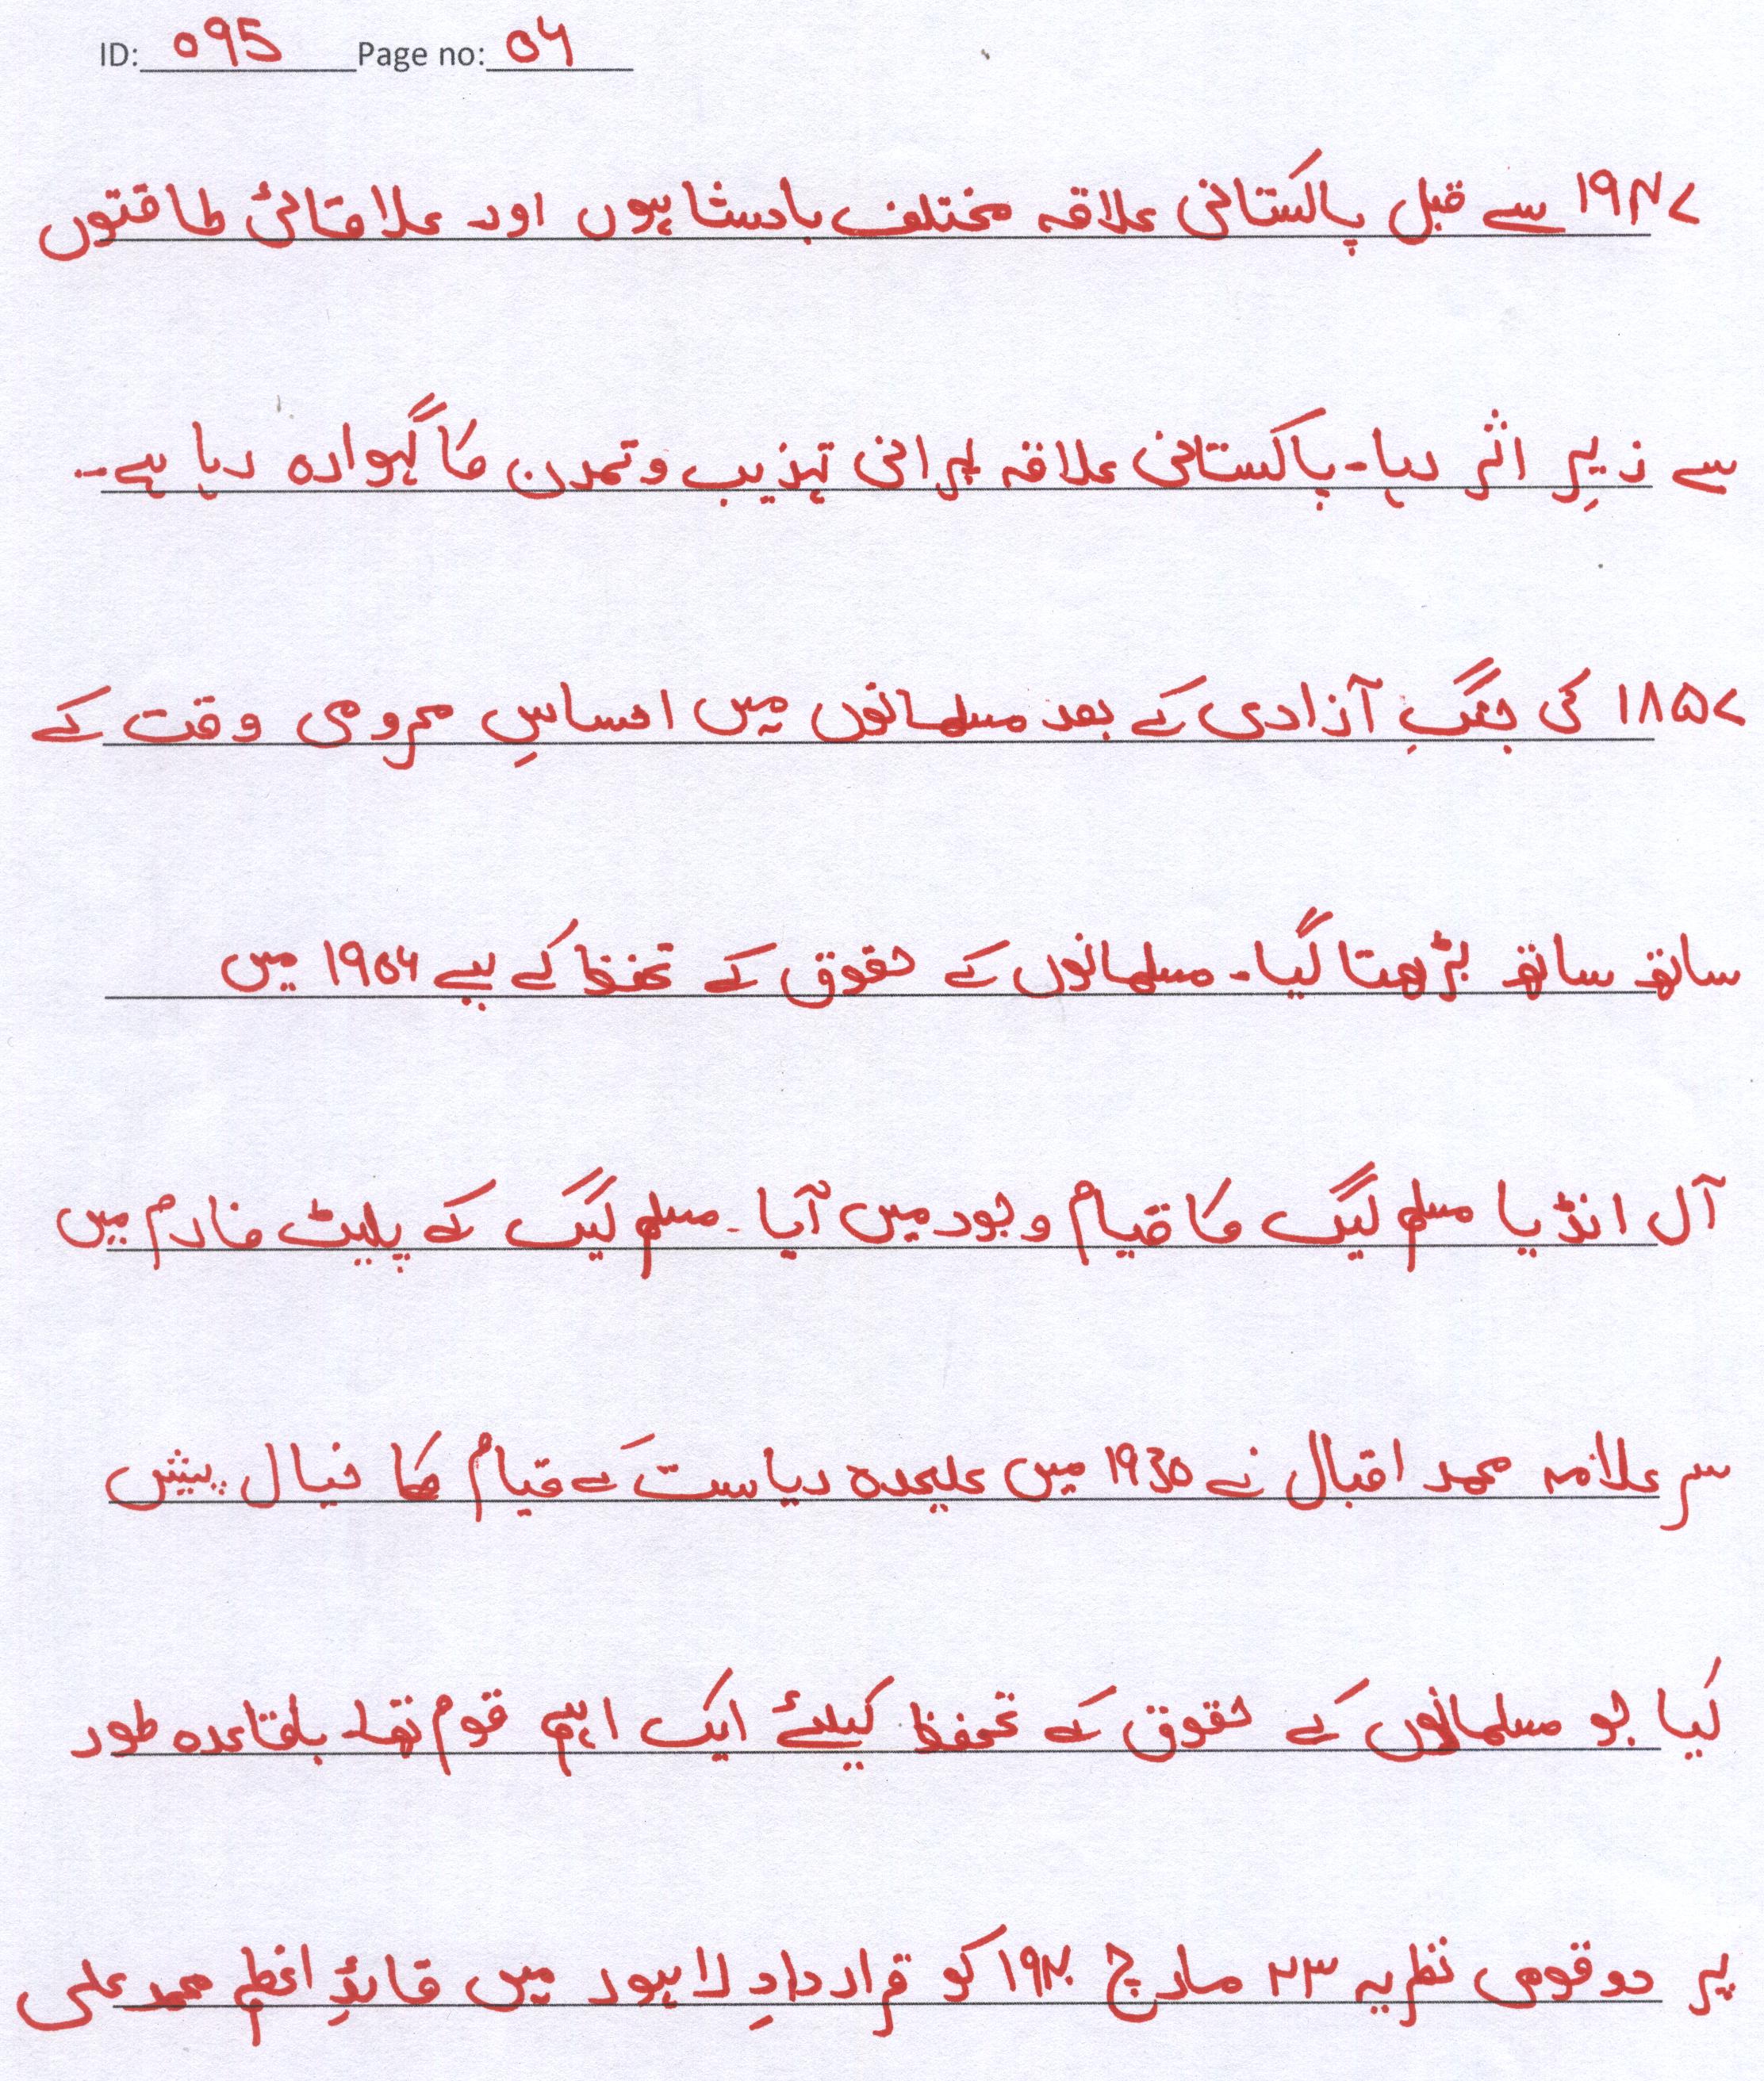 ID: 095 Page no: 04
۱۹۴۷ سے قبل پاکستانی علاقہ مختلف بادشاہوں اور علاقائی طاقتوں
سے زیرِ اثر رہا۔ پاکستانی علاقہ پرانی تہذیب و تمدن کا گہوارہ رہا ہے۔
۱۸۵۷ کی جنگِ آزادی کے بعد مسلمانوں میں احساسِ محرومی وقت کے
ساتھ ساتھ بڑھتا گیا۔ مسلمانوں کے حقوق کے تحفظ کے لیے ۱۹۰۶ میں
آل انڈیا مسلم لیگ کا قیام وجود میں آیا۔ مسلم لیگ کے پلیٹ فارم میں
سر علامہ محمد اقبال نے 1930 میں علیحدہ ریاست کے قیام کا خیال پیش
کیا جو مسلمانوں کے حقوق کے تحفظ کیلئے ایک اہم قوم تھا۔ باقاعدہ طور
پر دو قومی نظریہ ۲۳ مارچ ۱۹۴۰ کو قراردادِ لاہور میں قائدِ اعظم محمد علی